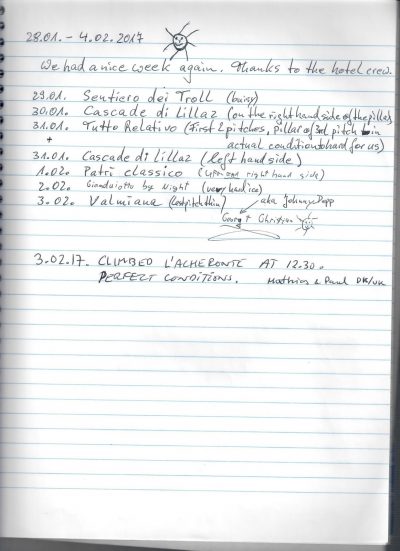 28.01. - 4.02.2017
We had a nice week again. Thanks to the hotel crew.
29.01. Sentiero dei Troll
30.01. Cascade di Lillaz (on the right hand side of the pillar)
31.01. Tutto Relativo (First 2 pitches, pillar of 3rd pitch in
+ actual condition to hard for us)
31.01. Cascade di Lillaz (left hand side)
1.02. Patrì classico (upper right hand side)
2.02. Gianduiotto by Night (very hard ice)
3.02. Valmiana (last pitch thin)
aka Johnny Depp
Georg + Christian
3.02.17. CLIMBED L'ACHERONTE AT 12.30.
PERFECT CONDITIONS. Mathias & Paul DK/UK